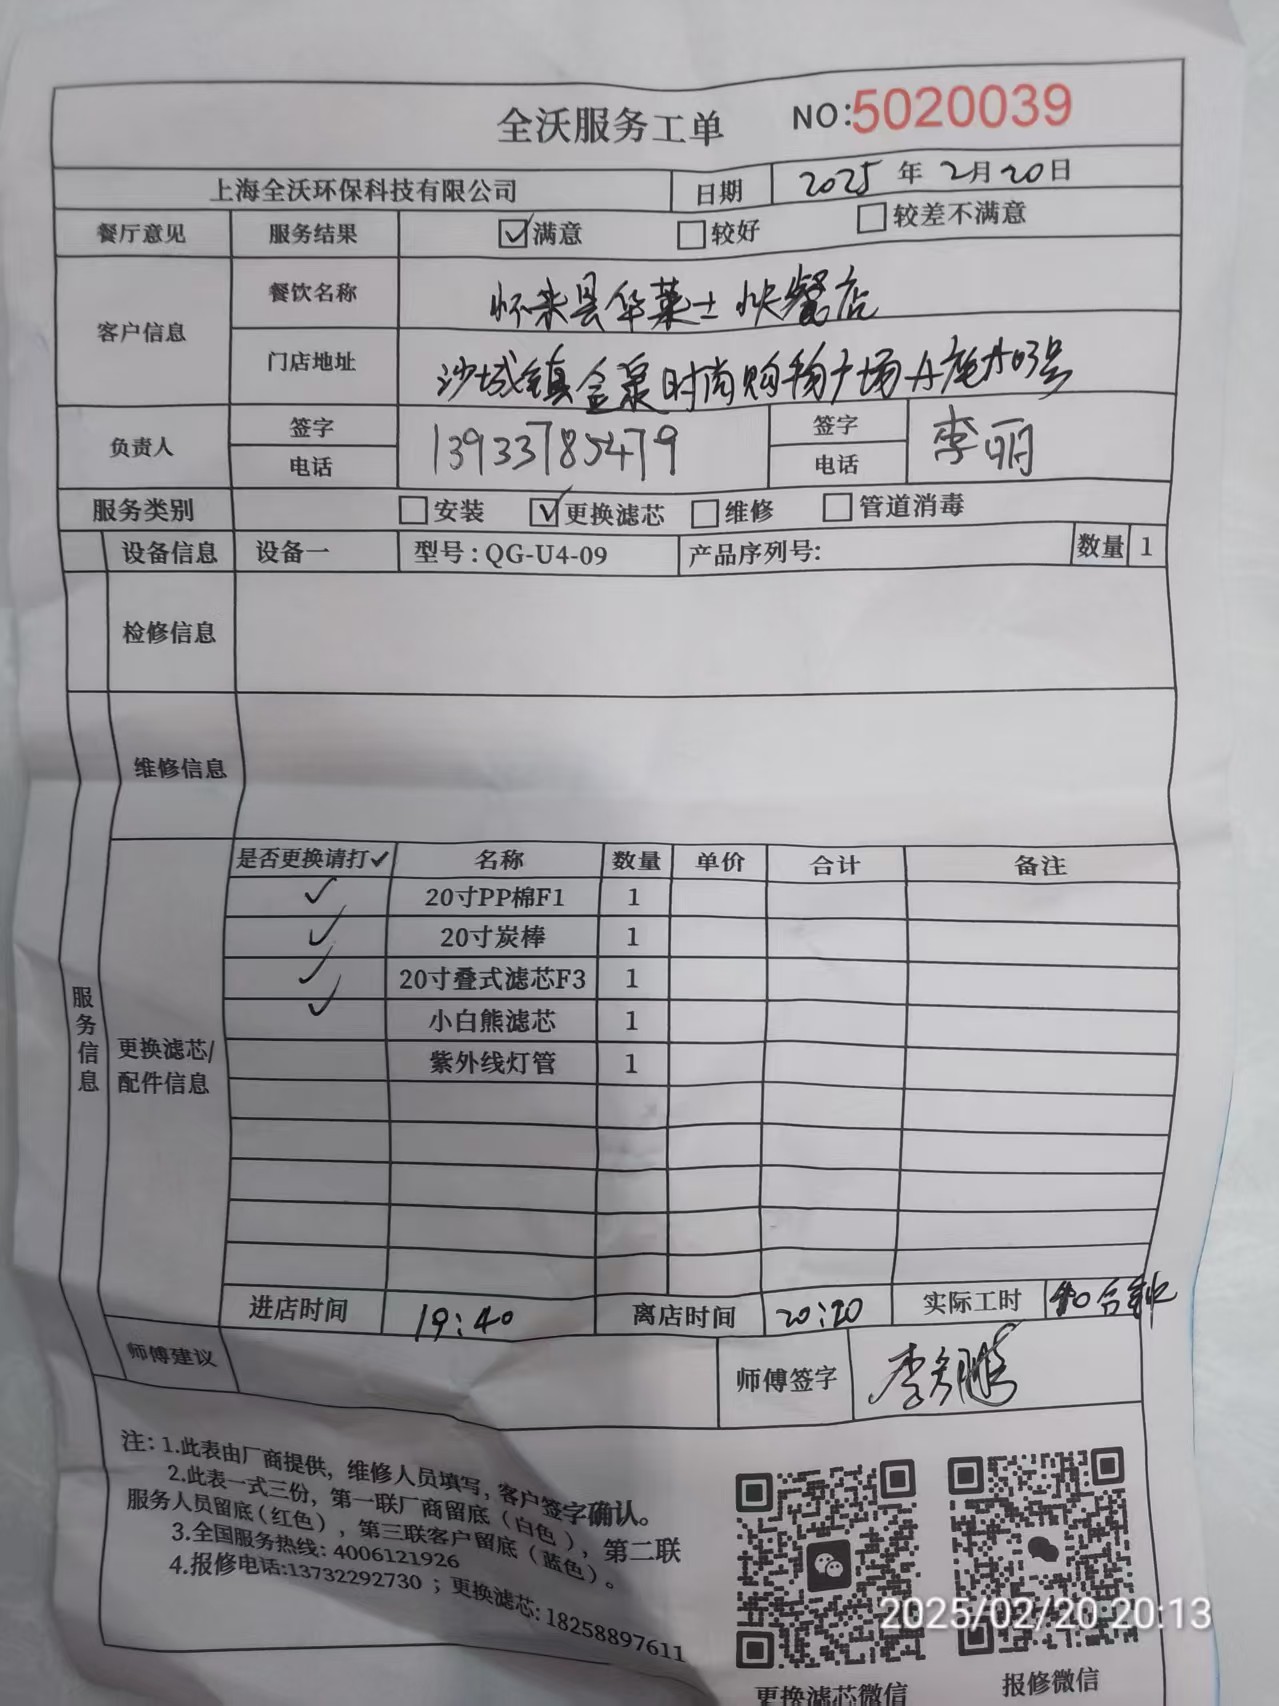 全沃服务工单 NO:5020039
上海全沃环保科技有限公司 日期 2025年2月20日
餐厅意见 服务结果 ☑满意 □较好 □较差不满意
客户信息 餐饮名称 怀来县华莱士快餐店
门店地址 沙城镇金泉时尚购物广场A座A03号
负责人 签字 电话 13933785479 签字 电话 李丽
服务类别 □安装 ☑更换滤芯 □维修 □管道消毒
设备信息 设备一 型号:QG-U4-09 产品序列号: 数量 1
检修信息
维修信息
服务信息
更换滤芯/
配件信息
是否更换请打✓ 名称 数量 单价 合计 备注
✓ 20寸PP棉F1 1
✓ 20寸炭棒 1
✓ 20寸叠式滤芯F3 1
✓ 小白熊滤芯 1
紫外线灯管 1
进店时间 19:40 离店时间 20:20 实际工时 40分钟
师傅建议 师傅签字
注: 1.此表由厂商提供, 维修人员填写, 客户签字确认。
2.此表一式三份, 第一联厂商留底(白色), 第二联
服务人员留底(红色), 第三联客户留底(蓝色)。
3.全国服务热线: 4006121926
4.报修电话:13732292730 ; 更换滤芯: 18258897611
2025/02/20 20:13
更换滤芯微信 报修微信